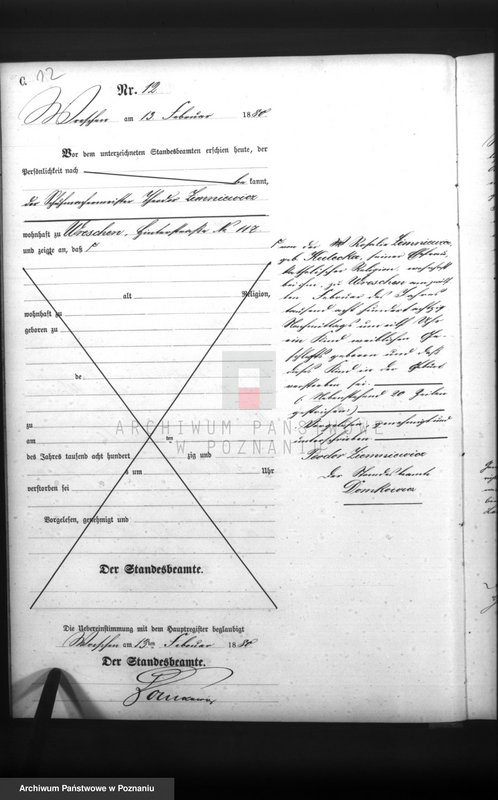 C. 12
Nr. 12
Wreschen am 13 Februar 1880.
Vor dem unterzeichneten Standesbeamten erschien heute, der
Persönlichkeit nach be kannt,
der Schuhmachermeister Theodor Ziemniewicz
wohnhaft zu Wreschen, № 117
und zeigte an, daß
alt Religion,
wohnhaft zu
geboren zu
de
zu
am ten
des Jahres tausend acht hundert zig und
um Uhr
verstorben sei
Vorgelesen, genehmigt und
Der Standesbeamte.
Die Uebereinstimmung mit dem Hauptregister beglaubigt
Wreschen am 13ten Februar 1880
Der Standesbeamte.
von der Rosalie
geb. Kulecka, seiner Ehefrau,
katholischer Religion, wohnhaft
bei ihm, zu Wreschen am zwölf
ten Februar des Jahres
tausend acht hundert achtzig
Nachmittags um elf Uhr
ein Kind weiblichen Ge-
schlechts geboren und daß
dieses Kind in der Geburt
verstorben sei.
(Nebenstehend 20 Zeilen
gestrichen.)
Vorgelesen, genehmigt und
unterschrieben
Teodor Ziemniewicz
Der Standesbeamte
ARCHIWUM PAŃSTWOWE
W POZNANIU
Archiwum Państwowe w Poznaniu